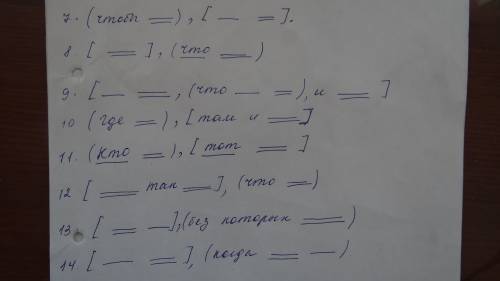 7. (чтобы ==), [— ==].
8. [ == ], (что == )
9. [ — ==, (что — =), и == ]
10 (где =), [там и ==]
11. (кто =), [тот == ]
12 [ == так == ], (что =)
13. [ = — ], (без которых == )
14. [ — == ], (когда == — )